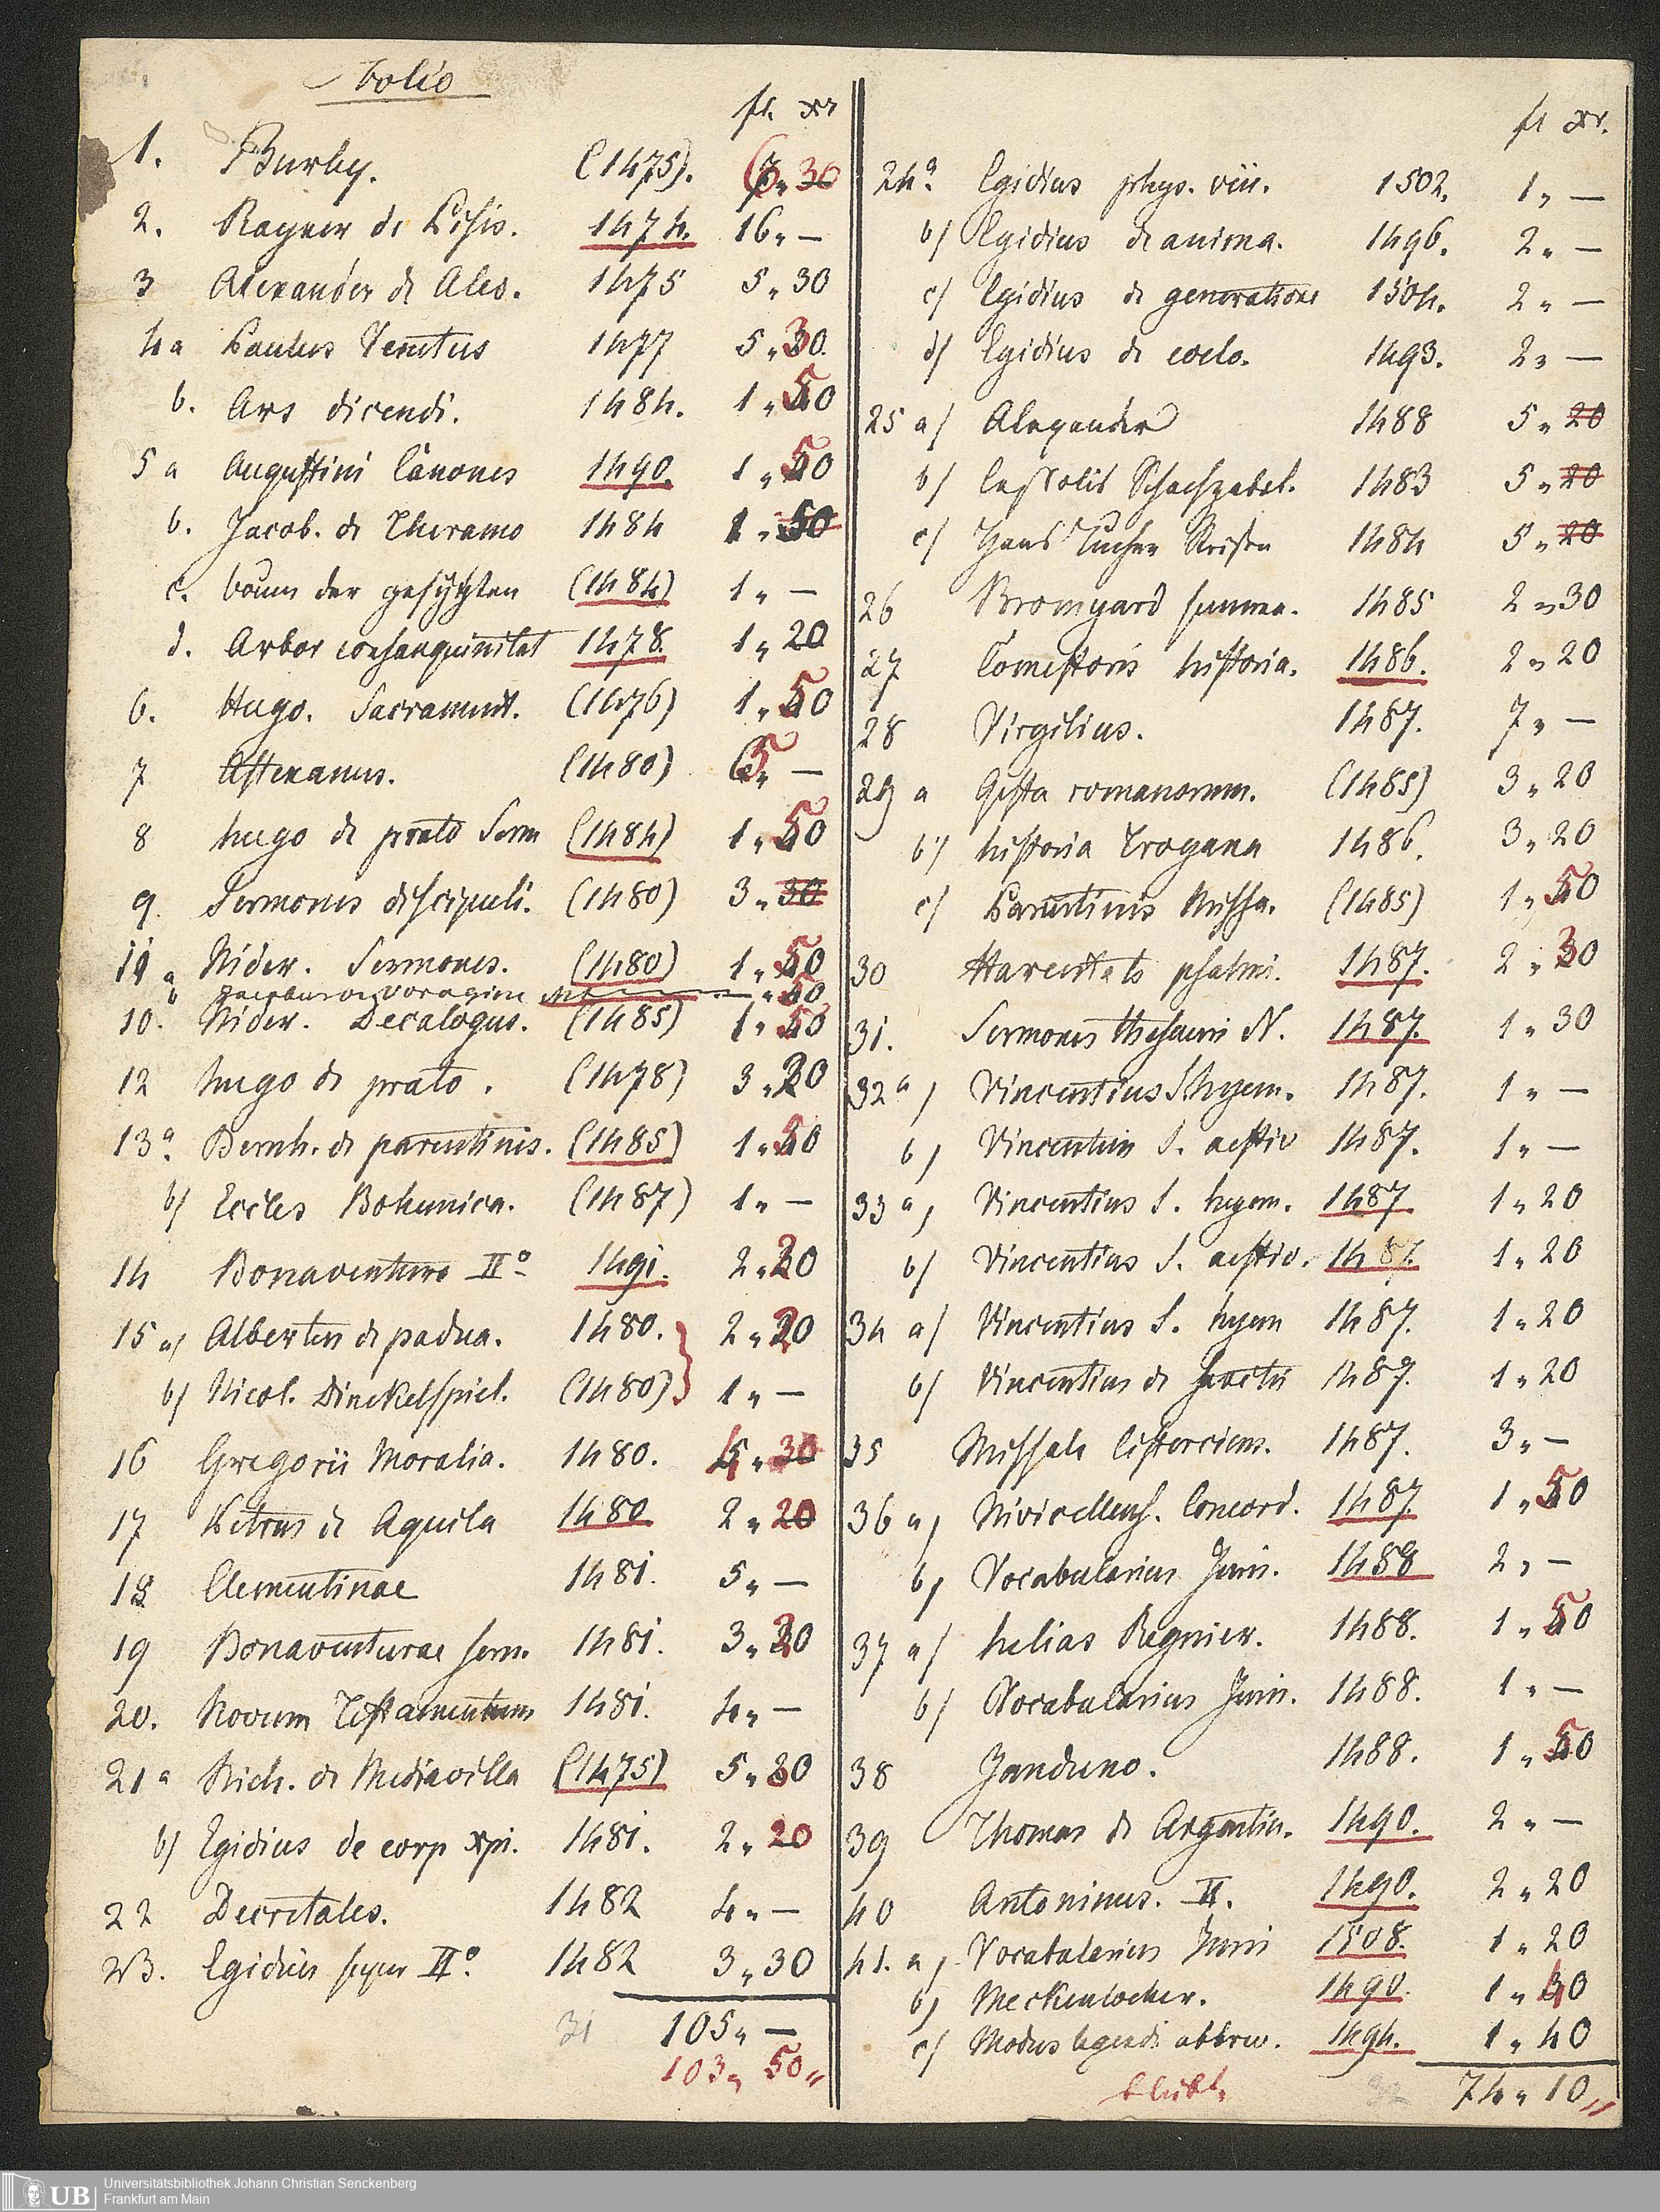 Folio
fl. xr
1. Burley. (1475). 7 „ 30
2. Rayner de Pisis. 1474. 16 „ —
3 Alexander de Ales. 1475 5 „ 30
4a Paulus Venetus 1477 5 „ 30.
b. Ars dicendi. 1484. 1 „ 50
5 a Augustini Canones 1490. 1 „ 50
b. Jacob. de Theramo 1484 1 „ 50
c. der (1484) 1 „ —
d. Arbor consanguinitat 1478. 1 „ 20
6. Hugo. Sacrament. (1476) 1 „ 50
7 Astexanus. (1480) 5 „ —
8 Hugo de prato Serm (1484) 1 „ 50
9. Sermones discipuli. (1480) 3 „ 30
11 a Nider. Sermones. (1480) 1 „ 50
b Jacobus de voragine — „ 50
10. Nider. Decalogus. (1485) 1 „ 50
12 Hugo de prato. (1478) 3 „ 20
13a. Bernh. de parentinis. (1485) 1 „ 50
b/ Eccles Bohemica. (1487) 1 „ —
14 Bonaventura IIo 1491. 2 „ 20
15 a/ Albertus de padua. 1480. 2 „ 20
b/ Nicol. Dinckelspiel. (1480) 1 „ —
16 Gregorii Moralia. 1480. 4 „ 30
17 Petrus de Aquila 1480 2 „ 20
18 Clementinae 1481. 5 „ —
19 Bonaventurae serm. 1481. 3 „ 20
20. Novum Testamentum 1481. 4 „ —
21a Rich. de Mediavilla (1475) 5 „ 20
b/ Egidius de corp xpi. 1481. 2 „ 20
22 Decretales. 1482 4 „ —
23. Egidius super IIo. 1482 3 „ 30
31 105 „ —
103 „ 50 „
fl xr.
24a. Egidius phys. viii. 1502. 1 „ —
b/ Egidius de anima. 1496. 2 „ —
c/ Egidius de generatione 1504. 2 „ —
d/ Egidius de coelo. 1493. 2 „ —
25 a/ Alexander 1488 5 „ 20
b/ Cessolis Schachzabel. 1483 5 „ 20
c/ Hans Tucher Reisen 1484 5 „ 20
26 Bromyard summa. 1485 2 „ 30
27 Comestoris historia. 1486. 2 „ 20
28 Virgilius. 1487. 7 „ —
29 a Gesta romanorum. (1485) 3 „ 20
b/ historia Trogana 1486. 3 „ 20
c/ Parentinis Missa. (1485) 1 „ 50
30 Harentals psalmi. 1487. 2 „ 30
31. Sermones thesauri N. 1487. 1 „ 30
32a, Vincentius S. hyem. 1487. 1 „ —
b, Vincentius S. aestiv 1487. 1 „ —
33 a, Vincentius S. hyem. 1487. 1 „ 20
b/ Vincentius S. aestiv. 1487. 1 „ 20
34 a/ Vincentius S. hyem 1487. 1 „ 20
b/ Vincentius de Sanctis 1487. 1 „ 20
35 Missale Cisterciens. 1487. 3 „ —
36 a, Nivicellens. Concord. 1487 1 „ 50
b, Vocabularius Juris. 1488 2 „ —
37 a/ helias Regnier. 1488. 1 „ 50
b/ Vocabularius Juris. 1488. 1 „ —
38 Janduno. 1488. 1 „ 50
39 Thomas de Argentin. 1490. 2 „ —
40 Antoninus. II. 1490. 2 „ 20
41. a, Vocabularius Juris 1508. 1 „ 20
b, Meckenlocher. 1490. 1 „ 40
c/ Modus legendi abbrev. 1494. 1 „ 40
bleibt. 32 74 „ 10 „
UB Universitätsbibliothek Johann Christian Senckenberg
Frankfurt am Main